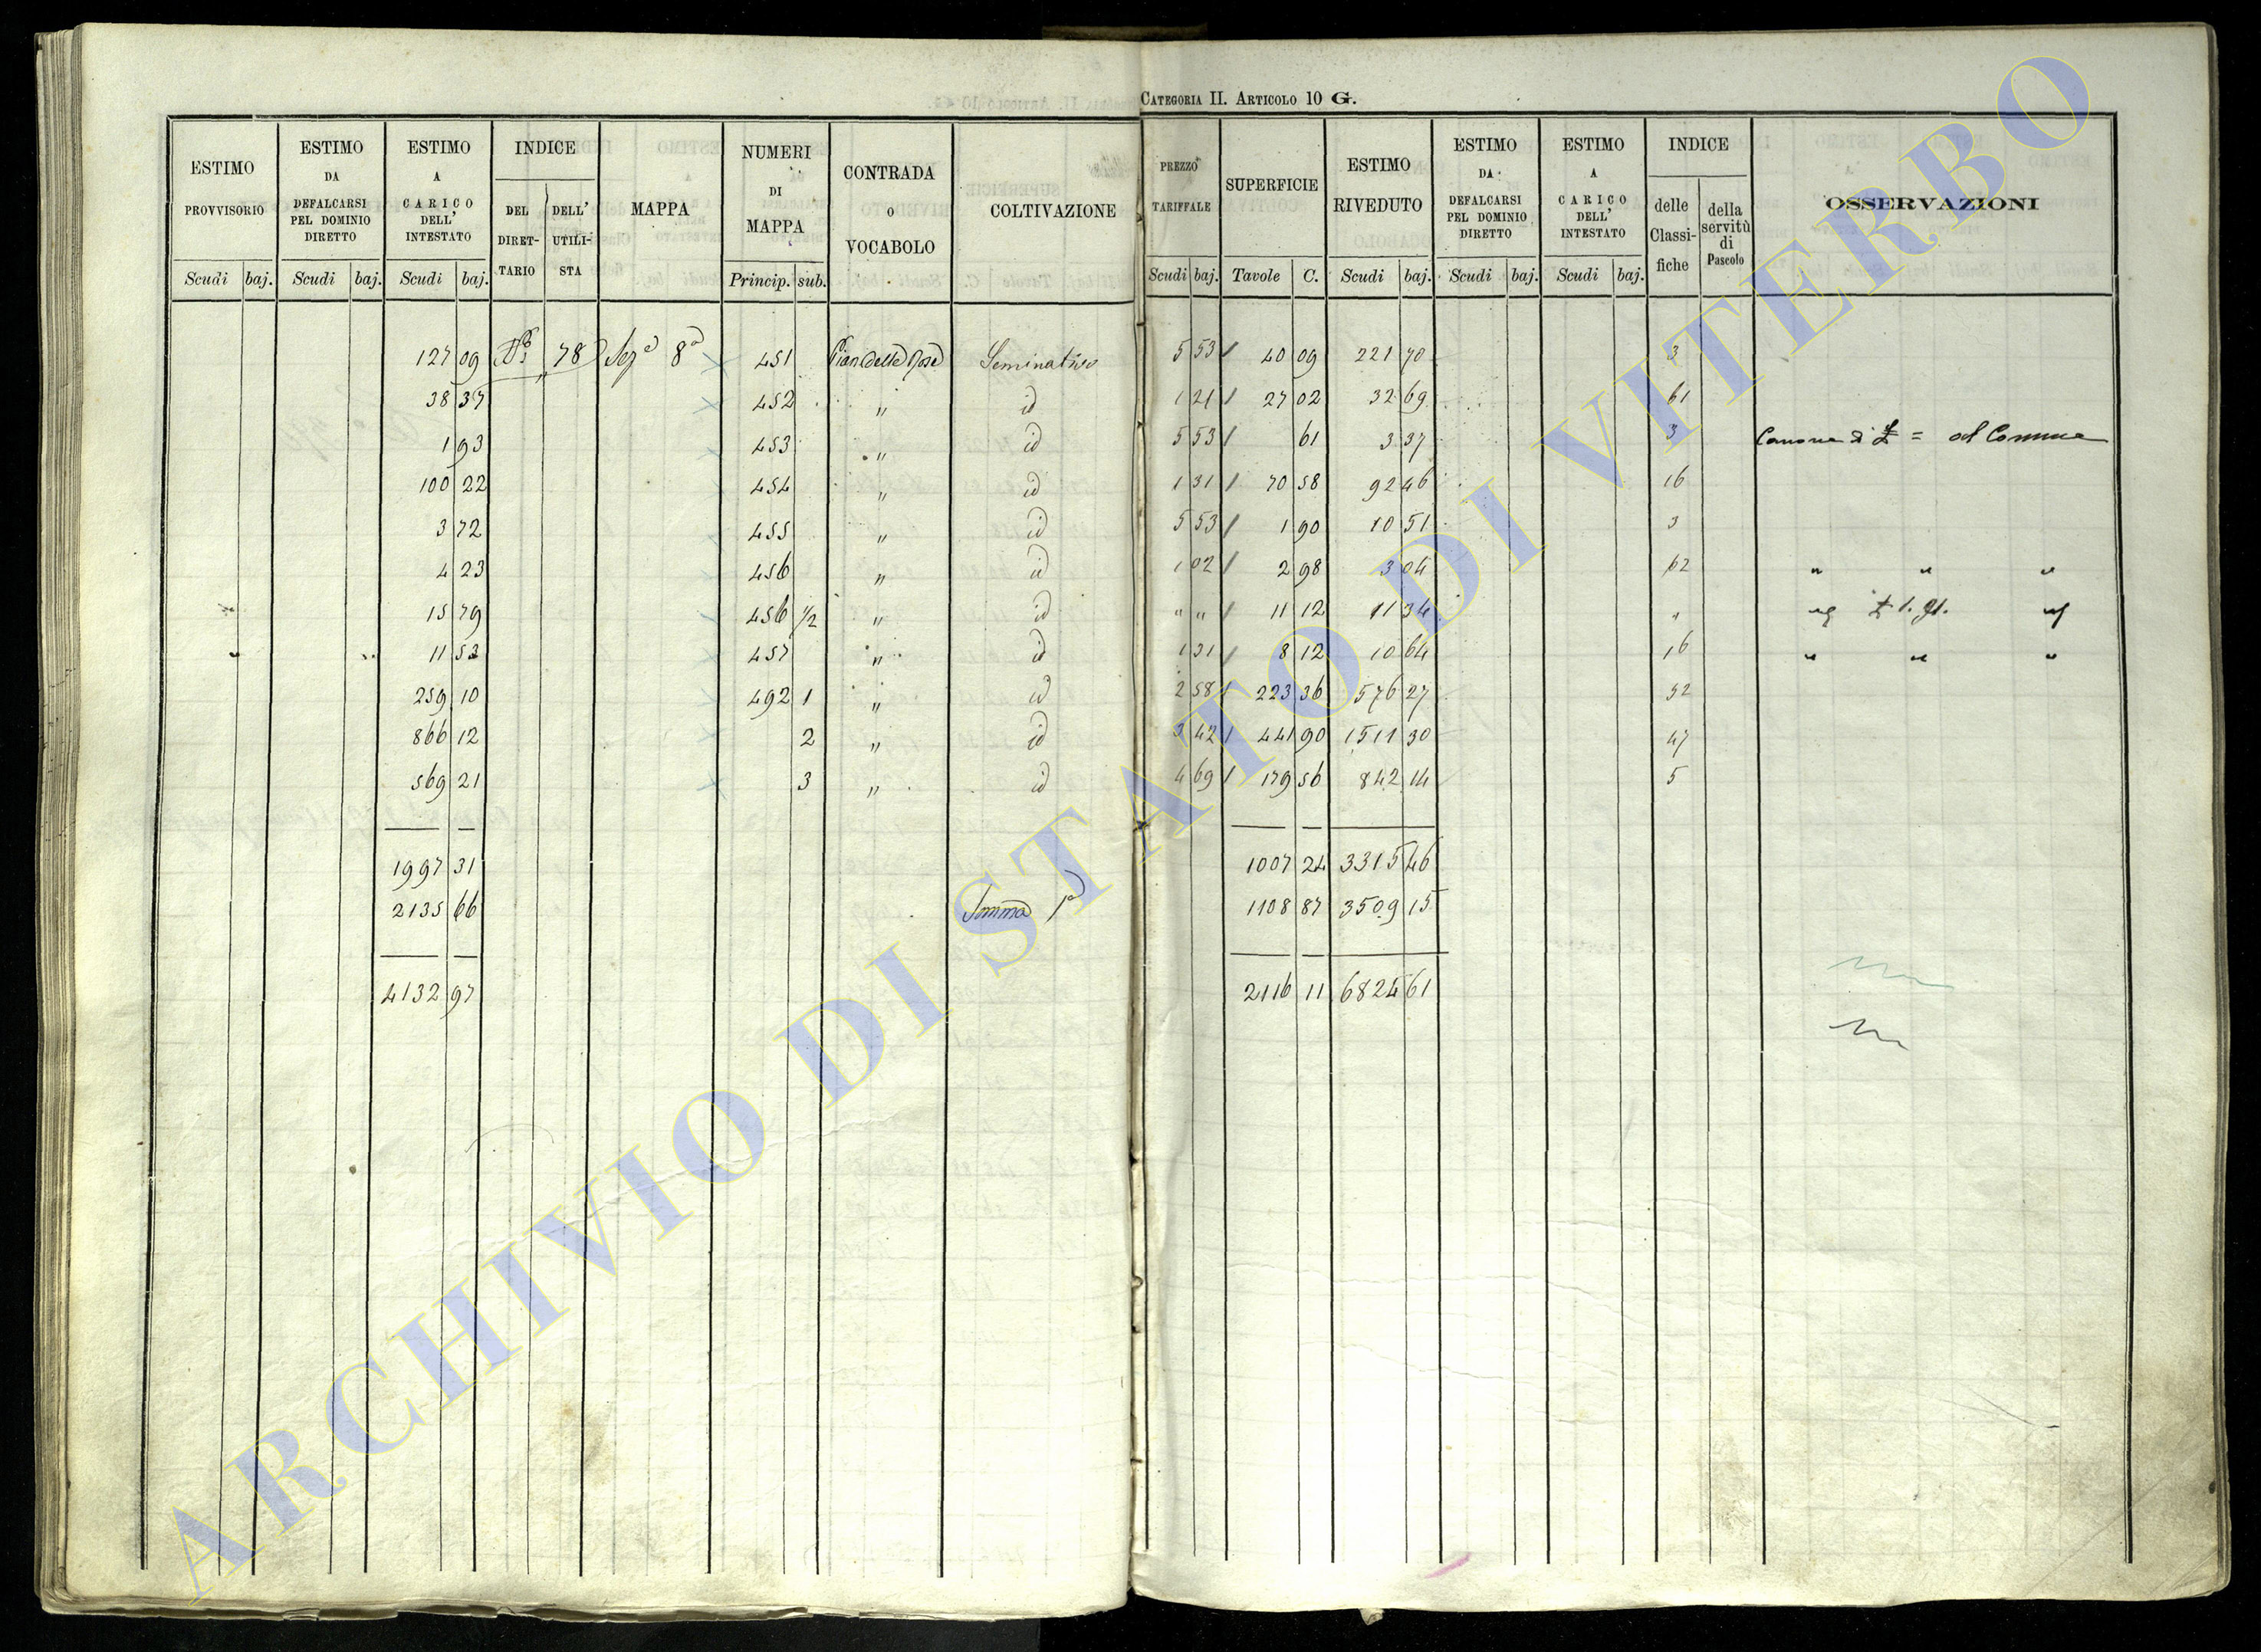 CATEGORIA II. ARTICOLO 10 G.
ESTIMO PROVVISORIO | ESTIMO DA DEFALCARSI PEL DOMINIO DIRETTO | ESTIMO A CARICO DELL' INTESTATO | INDICE DEL DIRETTARIO | DELL' UTILISTA | MAPPA | NUMERI DI MAPPA | CONTRADA O VOCABOLO | COLTIVAZIONE | PREZZO TARIFFALE | SUPERFICIE | ESTIMO RIVEDUTO | ESTIMO DA DEFALCARSI PEL DOMINIO DIRETTO | ESTIMO A CARICO DELL' INTESTATO | INDICE delle Classifiche | della servitù di Pascolo | OSSERVAZIONI
Scudi baj. Scudi baj. Scudi baj. Princip. sub. Scudi baj. Tavole C. Scudi baj. Scudi baj. Scudi baj.
127 09 78 Sez 8a 451 Pian delle Seminativo 5 53 40 09 221 70 3
38 37 452 " id 1 21 27 02 32 69 61
1 93 453 " id 5 53 61 3 37 3 Canone di £ = al Comune
100 22 454 " id 1 31 70 58 92 46 16
3 72 455 " id 5 53 1 90 10 51 3
4 23 456 " id 1 02 2 98 3 04 62 " " "
15 79 456 1/2 " id " " 11 12 11 34 "
11 53 457 " id 1 31 8 12 10 64 16 " " "
259 10 492 1 " id 2 58 223 36 576 27 32
866 12 2 " id 3 42 441 90 1511 30 47
569 21 3 " id 4 69 179 56 842 14 5
1997 31 1007 24 3315 46
2135 66 Somma 1108 87 3509 15
4132 97 2116 11 6824 61
ARCHIVIO DI STATO DI VITERBO